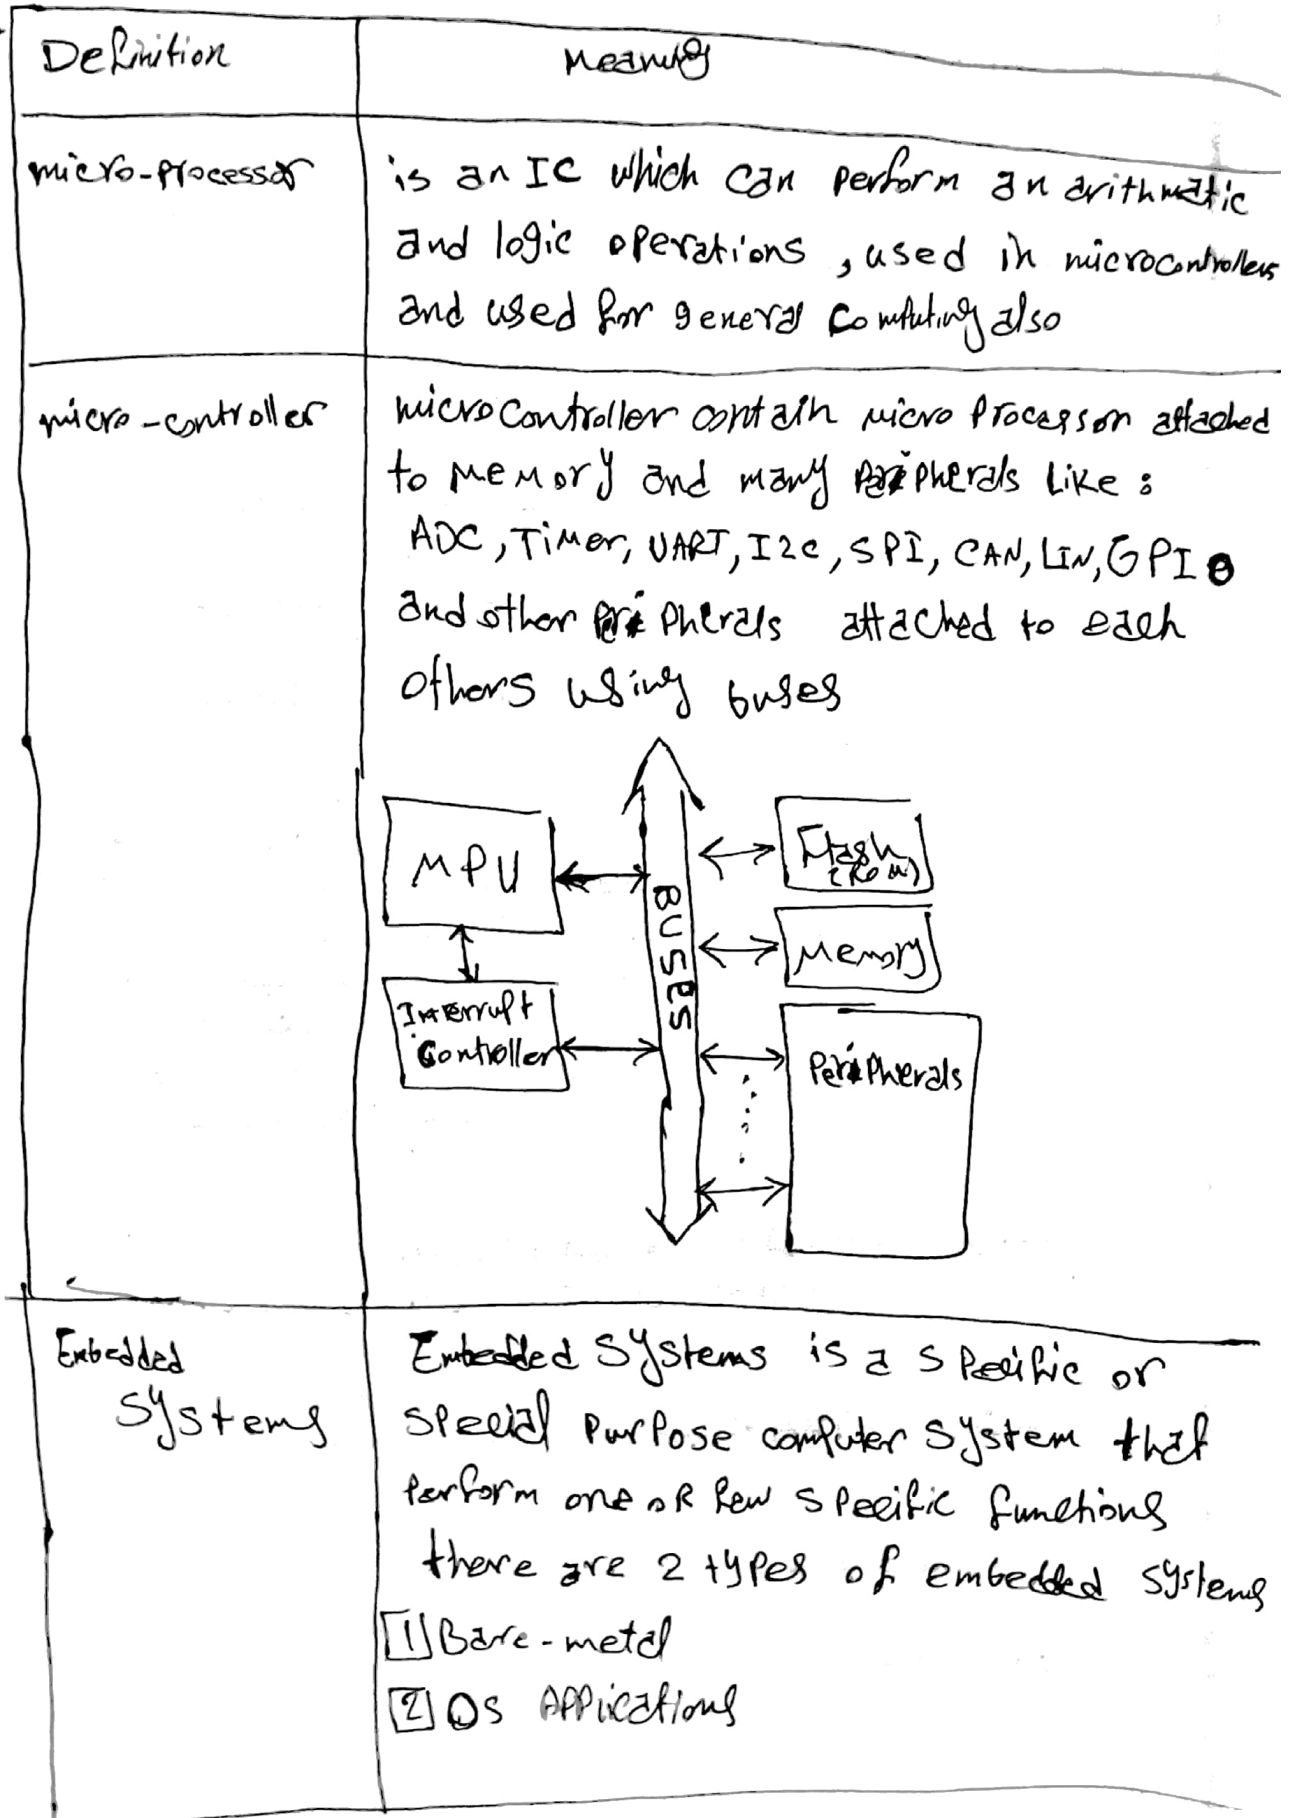 Definition
Meaning
micro-processor
is an IC which can perform an arithmatic
and logic operations , used in microcontrollers
and used for general computing also
micro-controller
microcontroller contain micro processor attached
to memory and many peripherals Like :
ADC, Timer, UART, I2C, SPI, CAN, LIN, GPIO
and other peripherals attached to each
others using buses
MPU
Interrupt
Controller
BUSES
Flash
(ROM)
Memory
Peripherals
Embedded
Systems
Embedded Systems is a specific or
special purpose computer system that
perform one or few specific functions
there are 2 types of embedded systems
1 Bare-metal
2 OS Applications